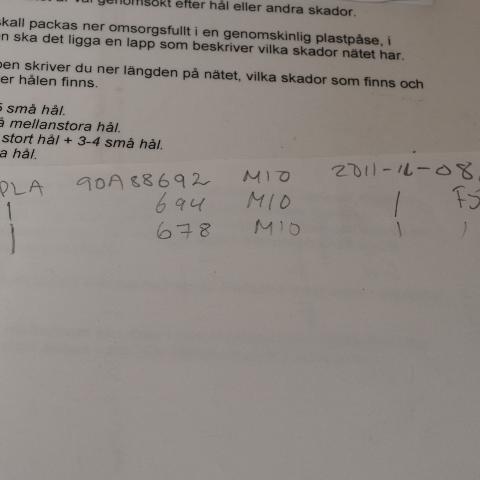 är väl genomsökt efter hål eller andra skador.
skall packas ner omsorgsfullt i en genomskinlig plastpåse, i
n ska det ligga en lapp som beskriver vilka skador nätet har.
pen skriver du ner längden på nätet, vilka skador som finns och
er hålen finns.
5 små hål.
å mellanstora hål.
stort hål + 3-4 små hål.
a hål.
PLA 90A88692 M10 2011-12-08
| 694 M10 |
| 678 M10 | |